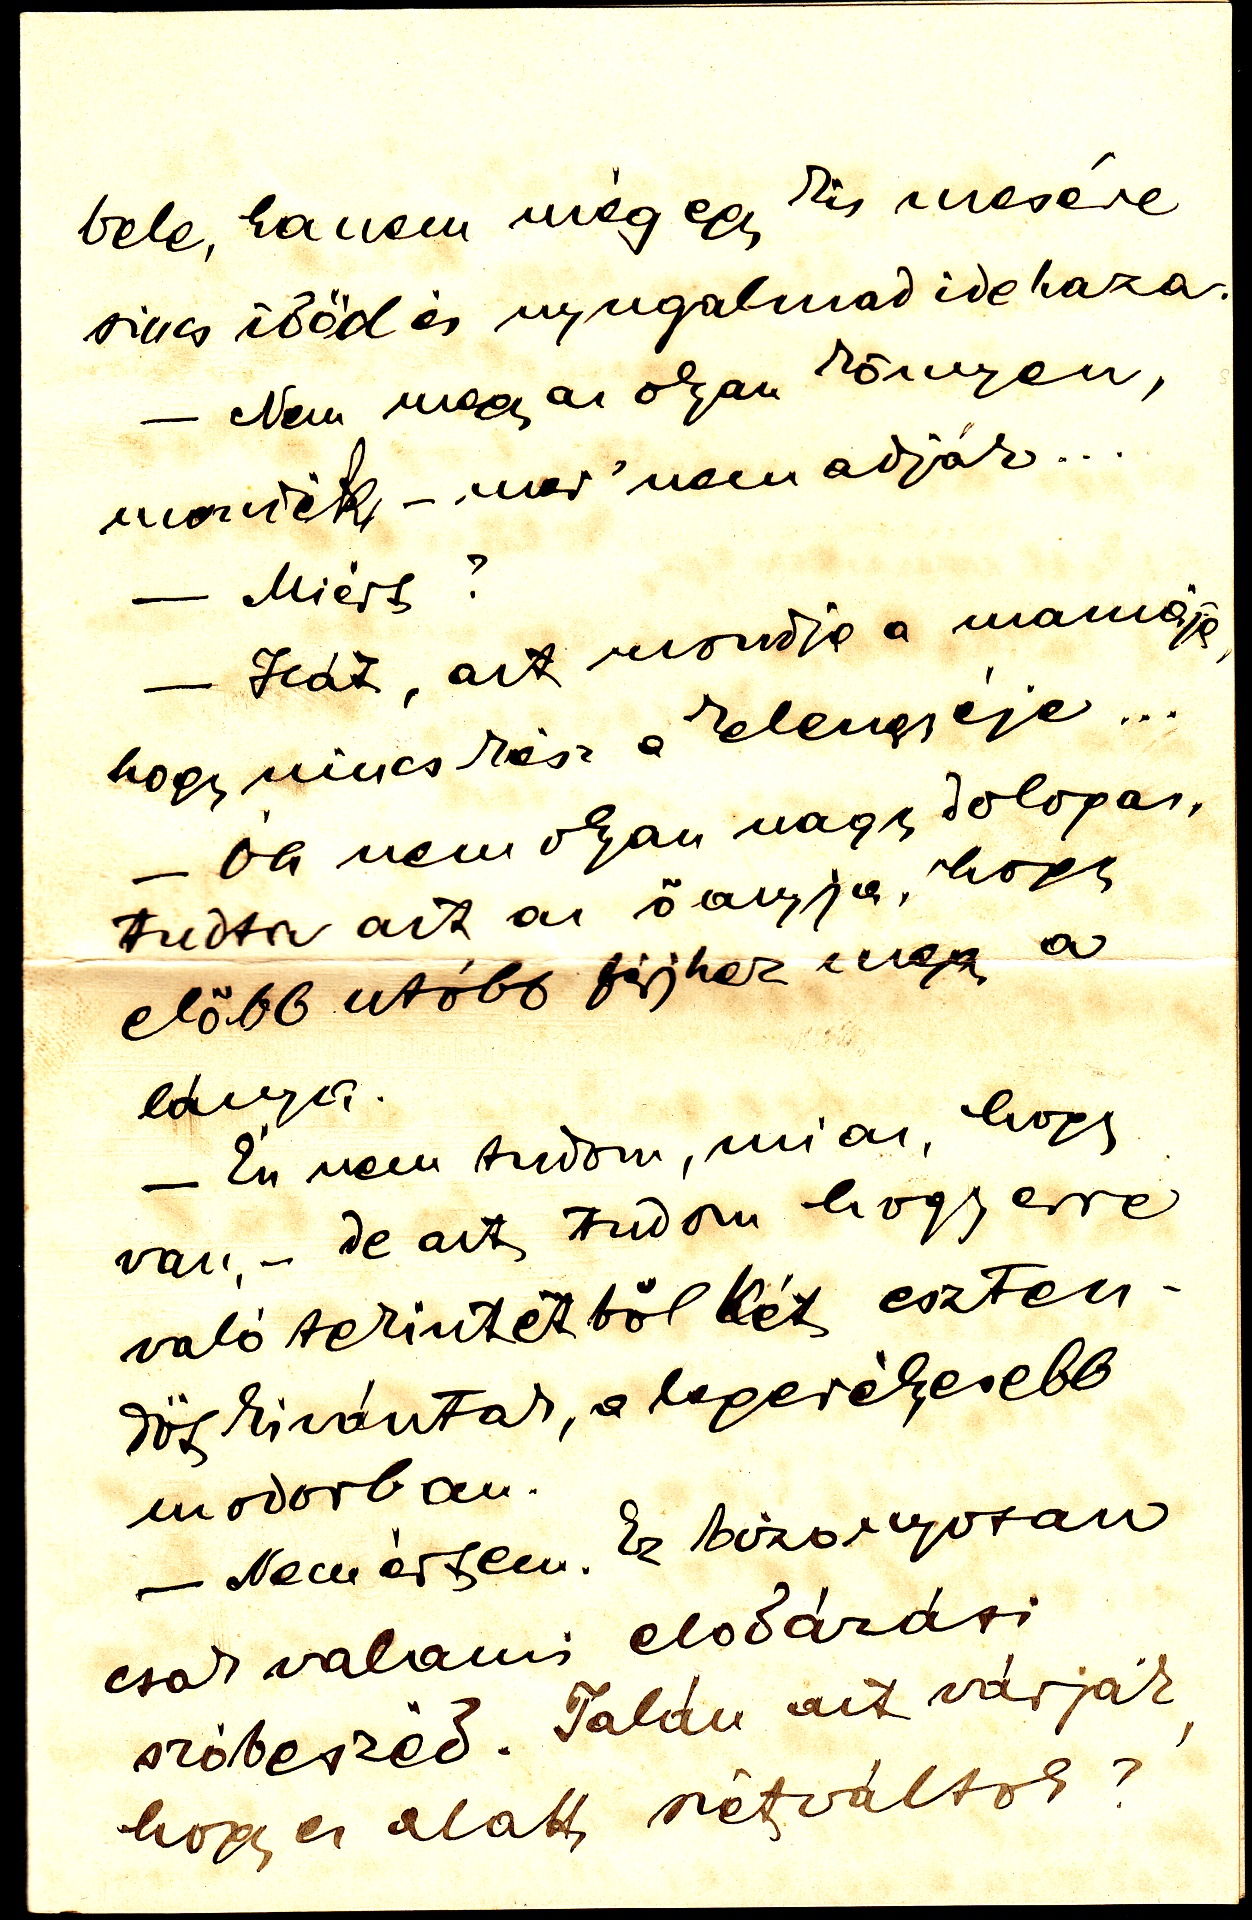 bele, hanem még egy kis mesére
sincs időd és nyugalmad idehaza.
— Nem megy az olyan könnyen,
mondták, – mer' nem adják ...
— Miért ?
— Hát, azt mondja a mamája,
hogy nincs kész a kelengyéje ...
— Óh nem olyan nagy dolog az,
tudta azt az õ anyja, hogy
elõbb utóbb férjhez megy a
lánya.
— Én nem tudom, mi az, hogy
van, – de azt tudom hogy erre
való tekintetbõl két eszten-
dőt kivántak, a legerélyesebb
modorban.
— Nem értem. Ez bizonyosan
csak valami elodázási
szóbeszéd. Talán azt várják,
hogy ez alatt szétváltok ?